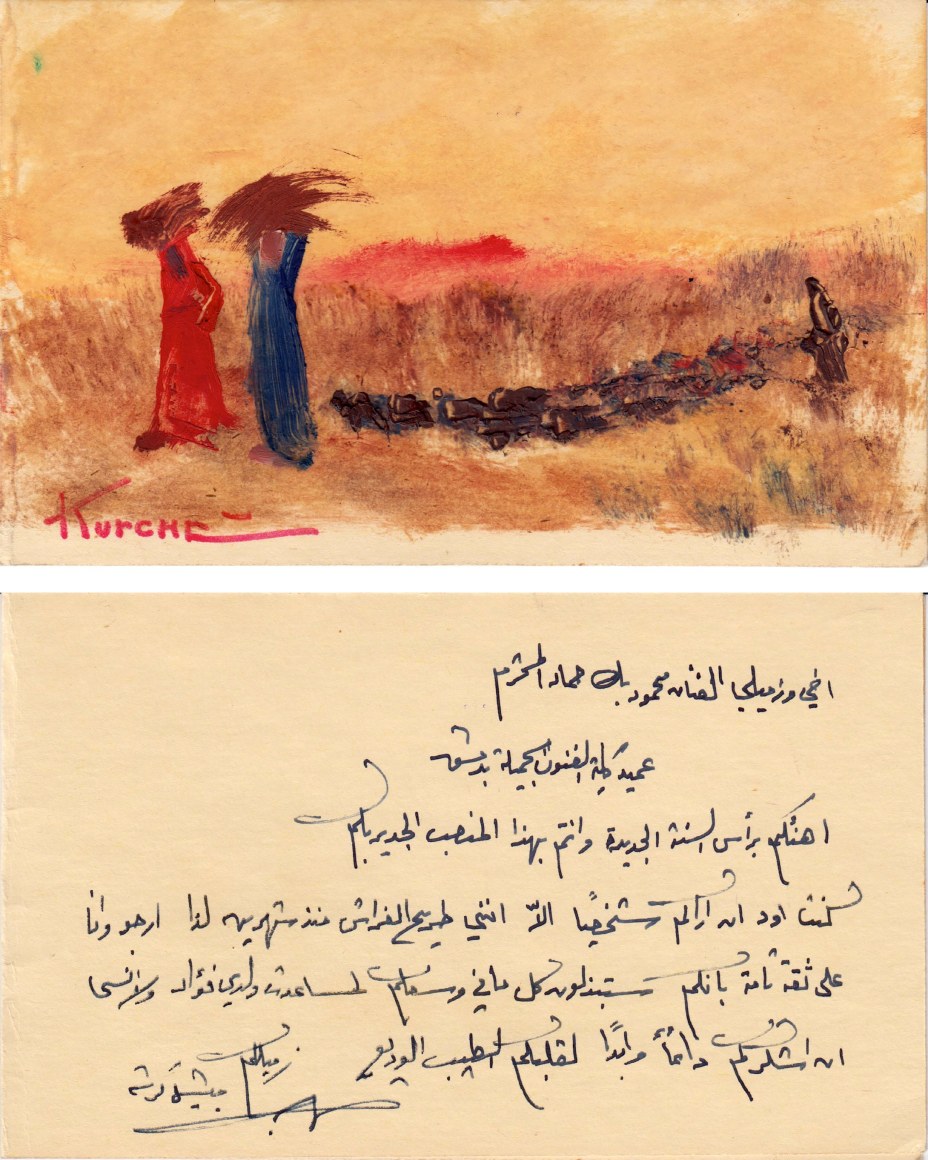 Kurché
اخي وزميلي الفنان محمود بك حماد المحترم
عميد كلية الفنون الجميلة بدمشق
اهنئكم برأس السنة الجديدة وانتم بهذا المنصب الجدير بكم
كنت اود ان اراكم شخصيًا الّا انني طريح الفراش منذ شهرين لذا ارجو وانا
على ثقة تامة بانكم ستبذلون كل مافي وسعكم لمساعدت ولدي فؤاد ولا انسا
ان اشكركم دائمأ وابدًا لقلبكم الطيب الوديع
زميلكم ميشيل كرشه